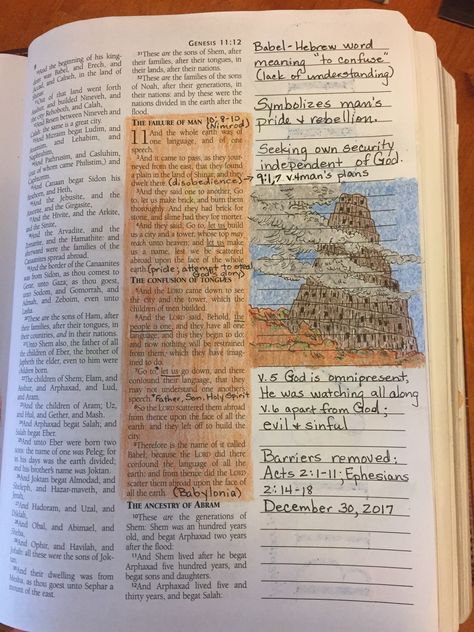 GENESIS 11:12
And the beginning of his king-
dom was Babel, and Erech, and
Accad, and Calneh, in the land of
Out of that land went forth
Asshur, and builded Nineveh, and
the city Rehoboth, and Calah,
And Resen between Nineveh and
Calah: the same is a great city.
And Mizraim begat Ludim, and
Anamim, and Lehabim, and
Naphtuhim,
And Pathrusim, and Casluhim,
(out of whom came Philistim,) and
Caphtorim.
And Canaan begat Sidon his
firstborn, and Heth,
And the Jebusite, and the
Amorite, and the Girgasite,
And the Hivite, and the Arkite,
and the Sinite,
And the Arvadite, and the
Zemarite, and the Hamathite: and
afterward were the families of the
Canaanites spread abroad.
And the border of the Canaanites
was from Sidon, as thou comest to
Gerar, unto Gaza; as thou goest,
unto Sodom, and Gomorrah, and
Admah, and Zeboim, even unto
Lasha.
These are the sons of Ham, after
their families, after their tongues, in
their countries, and in their nations.
Unto Shem also, the father of all
the children of Eber, the brother of
Japheth the elder, even to him were
children born.
The children of Shem; Elam, and
Asshur, and Arphaxad, and Lud,
and Aram.
And the children of Aram; Uz,
and Hul, and Gether, and Mash.
And Arphaxad begat Salah; and
Salah begat Eber.
And unto Eber were born two
sons: the name of one was Peleg; for
in his days was the earth divided;
and his brother's name was Joktan.
And Joktan begat Almodad, and
Sheleph, and Hazar-maveth, and
Jerah,
And Hadoram, and Uzal, and
Diklah,
And Obal, and Abimael, and
Sheba,
And Ophir, and Havilah, and
Jobab: all these were the sons of Jok-
tan.
And their dwelling was from
Mesha, as thou goest unto Sephar a
mount of the east.
31These are the sons of Shem, after
their families, after their tongues,
in their lands, after their nations.
32These are the families of the sons
of Noah, after their generations, in
their nations: and by these were the
nations divided in the earth after the
flood.
THE FAILURE OF MAN 10; 8-10 (Nimrod)
11 And the whole earth was of
one language, and of one
speech.
2And it came to pass, as they jour-
neyed from the east, that they found
a plain in the land of Shinar; and they
dwelt there. (disobedience)
3And they said one to another, Go
to, let us make brick, and burn them
thoroughly. And they had brick for
stone, and slime had they for morter.
4And they said, Go to, let us build
us a city and a tower, whose top may
reach unto heaven; and let us make
us a name, lest we be scattered
abroad upon the face of the whole
earth. (pride; attempt to steal God's glory)
THE CONFUSION OF TONGUES
5And the LORD came down to see
the city and the tower, which the
children of men builded.
6And the LORD said, Behold, the
people is one, and they have all one
language; and this they begin to do:
and now nothing will be restrained
from them, which they have imag-
ined to do.
7Go to, let us go down, and there
confound their language, that they
may not understand one another's
speech. *Father, Son, Holy Spirit
8So the LORD scattered them abroad
from thence upon the face of all the
earth: and they left off to build the
city.
9Therefore is the name of it called
Babel; because the LORD did there
confound the language of all the
earth: and from thence did the LORD
scatter them abroad upon the face of
all the earth. (Babylonia)
THE ANCESTRY OF ABRAM
10These are the generations of
Shem: Shem was an hundred years
old, and begat Arphaxad two years
after the flood:
11And Shem lived after he begat
Arphaxad five hundred years, and
begat sons and daughters.
12And Arphaxad lived five and
thirty years, and begat Salah:
Babel - Hebrew word
meaning "to confuse"
(lack of understanding)
Symbolizes man's
pride & rebellion.
Seeking own security
independent of God.
9:1,7 v.4 man's plans
v.5 God is omnipresent,
He was watching all along
v.6 apart from God;
evil & sinful
Barriers removed:
Acts 2:1-11; Ephesians
2:14-18
December 30, 2017